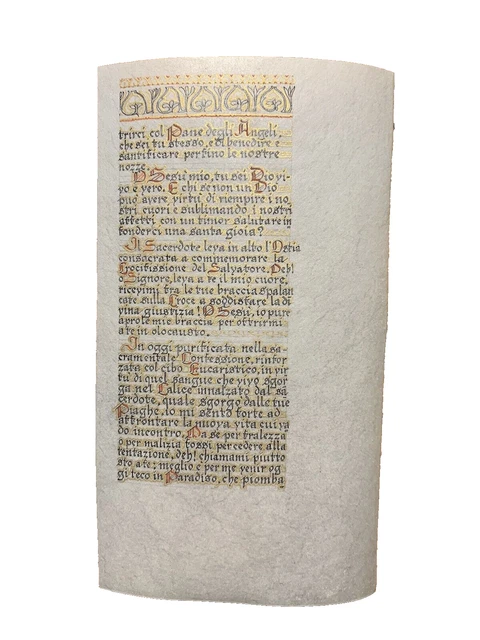 trirci col Pane degli Angeli,
che sei tu stesso, e di benedire e
santificare perfino le nostre
nozze.
O Gesù mio, tu sei Dio vi-
vo e vero. E chi se non un Dio
può avere virtù di riempire i no
stri cuori e sublimando i nostri
affetti con un timor salutare in
fonderci una santa gioia?
Il Sacerdote leva in alto l'Ostia
consacrata a commemorare la
Crocifissione del Salvatore. Deh!
o Signore, leva a te il mio cuore,
ricevimi fra le tue braccia spalan
cate sulla Croce a soddisfare la di
vina giustizia! O Gesù, io pure
apro le mie braccia per offrirmi
a te in olocausto.
In oggi purificata nella sa-
cramentale Confessione, rinfor
zata col cibo Eucaristico, in vir
tù di quel sangue che vivo sgor
ga nel Calice innalzato dal sa
cerdote, quale sgorgò dalle tue
Piaghe, io mi sento forte ad
affrontare la nuova vita cui va
do incontro. Ma se per fralezza
o per malizia fossi per cedere alla
tentazione, deh! chiamami piutto
sto a te; meglio è per me venir og
gi teco in Paradiso, che piomba